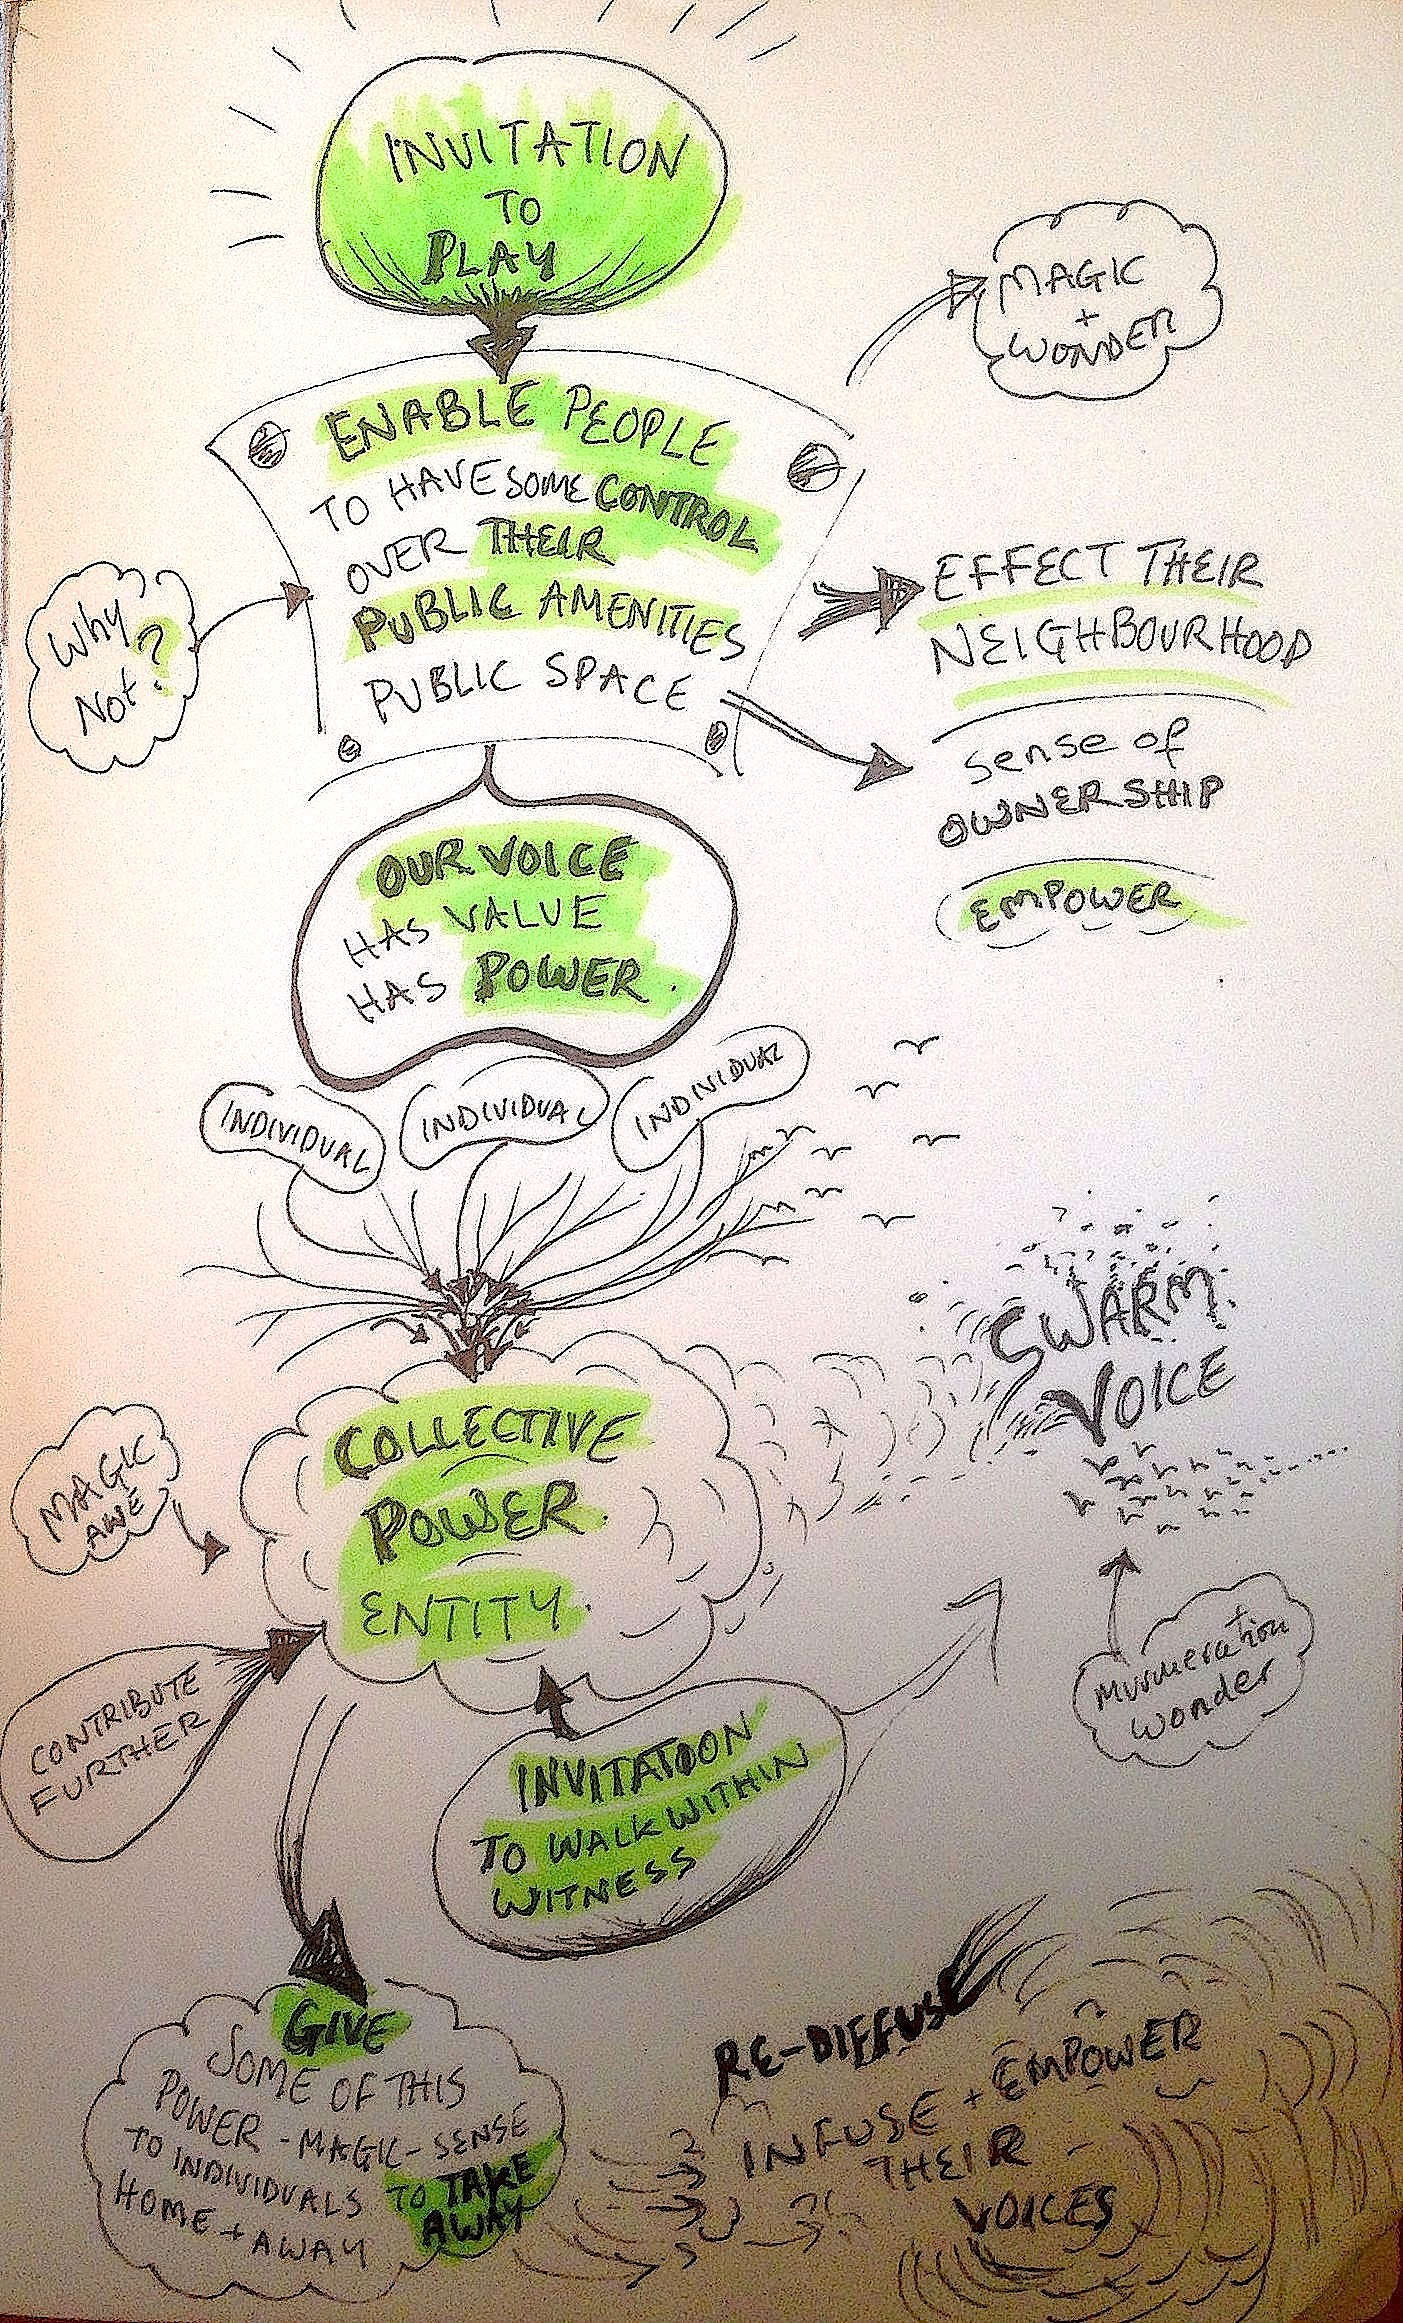 INVITATION
TO
PLAY
MAGIC
+
WONDER
ENABLE PEOPLE
TO HAVE SOME CONTROL
OVER THEIR
PUBLIC AMENITIES
PUBLIC SPACE
Why
Not?
EFFECT THEIR
NEIGHBOURHOOD
Sense of
OWNERSHIP
EMPOWER
OUR VOICE
HAS VALUE
HAS POWER.
INDIVIDUAL
INDIVIDUAL
INDIVIDUAL
SWARM
VOICE
COLLECTIVE
POWER
ENTITY.
MAGIC
AWE
CONTRIBUTE
FURTHER
INVITATOON
TO WALK WITHIN
WITNESS
Murmeration
wonder
GIVE
SOME OF THIS
POWER - MAGIC - SENSE
TO INDIVIDUALS TO TAKE
HOME + AWAY AWAY
RE-DIFFUSE
INFUSE + EMPOWER
THEIR
VOICES